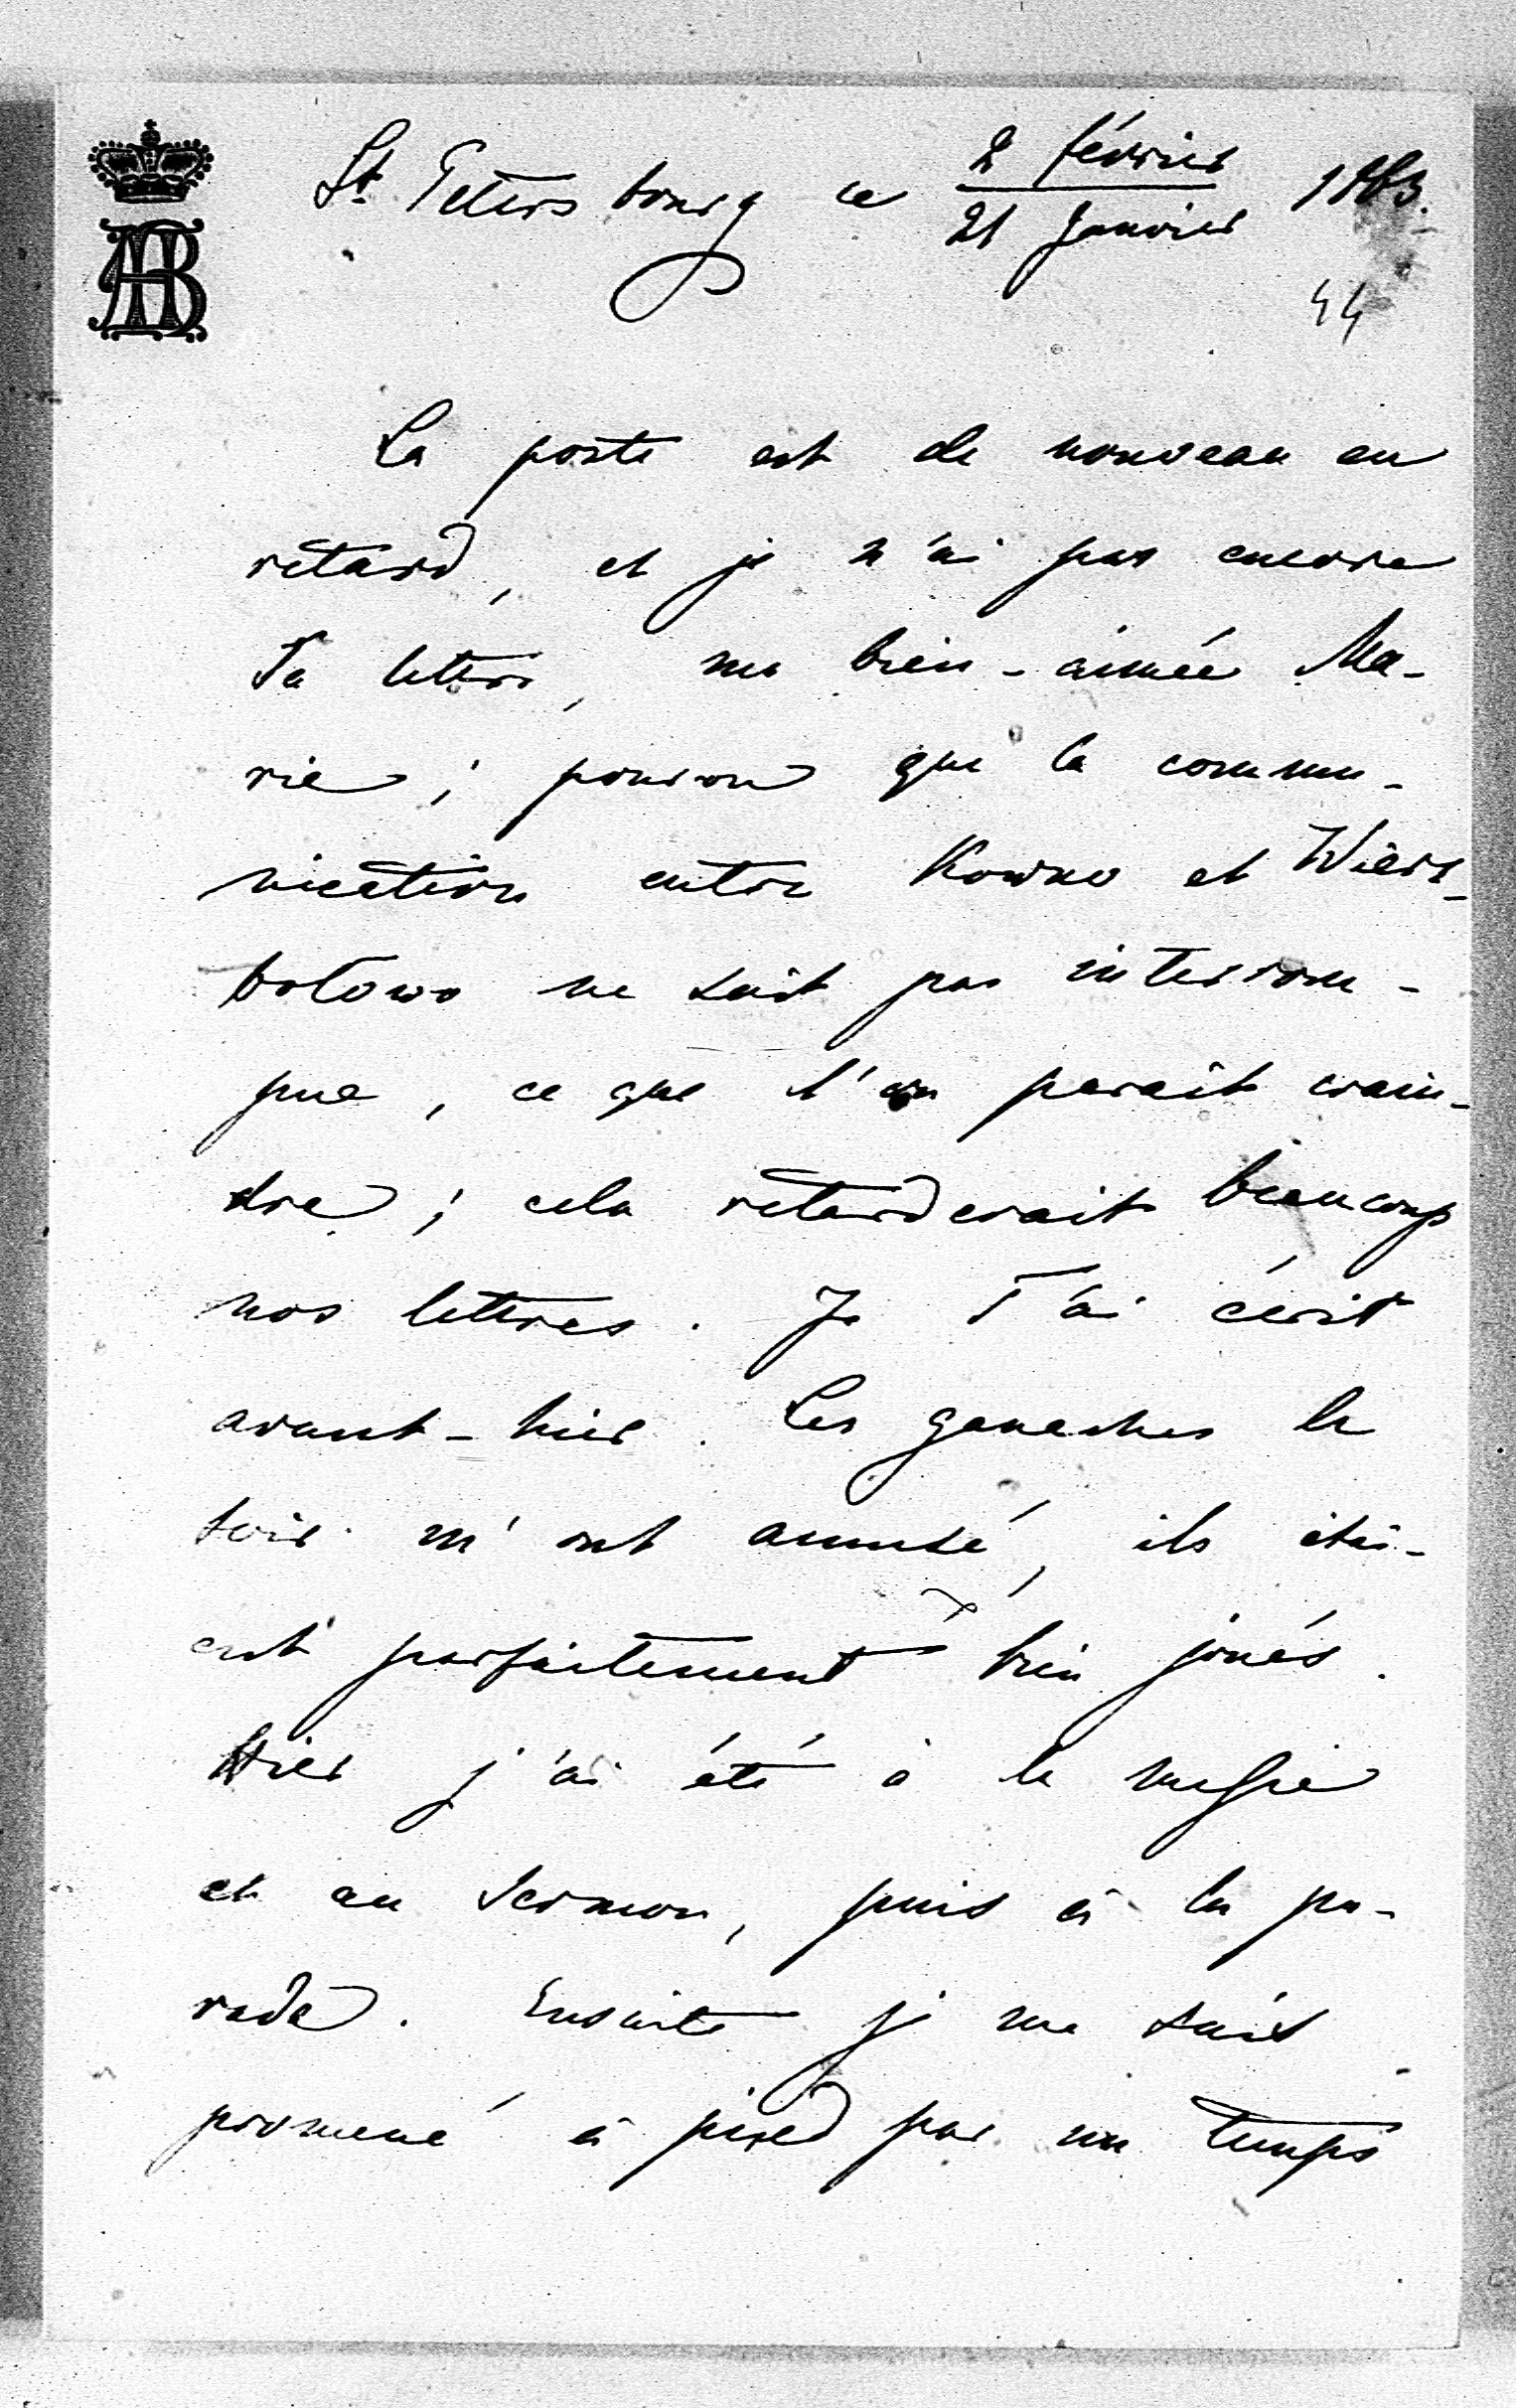 St. Petersbourg ce 2 février / 21 Janvier 1863.
44
La poste est de nouveau en
retard, et je n'ai pas encore
Ta lettre, ma bien-aimée Ma-
rie; pourvu que la commu-
nication entre Kowno et Wierz-
bolowo ne soit pas interrom-
pue, ce que l'on parait crain-
dre; cela retarderait beaucoup
nos lettres. Je T'ai écrit
avant-hier. Les ganaches le
soir m'ont amusé, ils étai-
ent parfaitement bien joués.
Hier j'ai été à la messe
et au sermon, puis à la pa-
rade. Ensuite je me suis
promené à pied par un temps